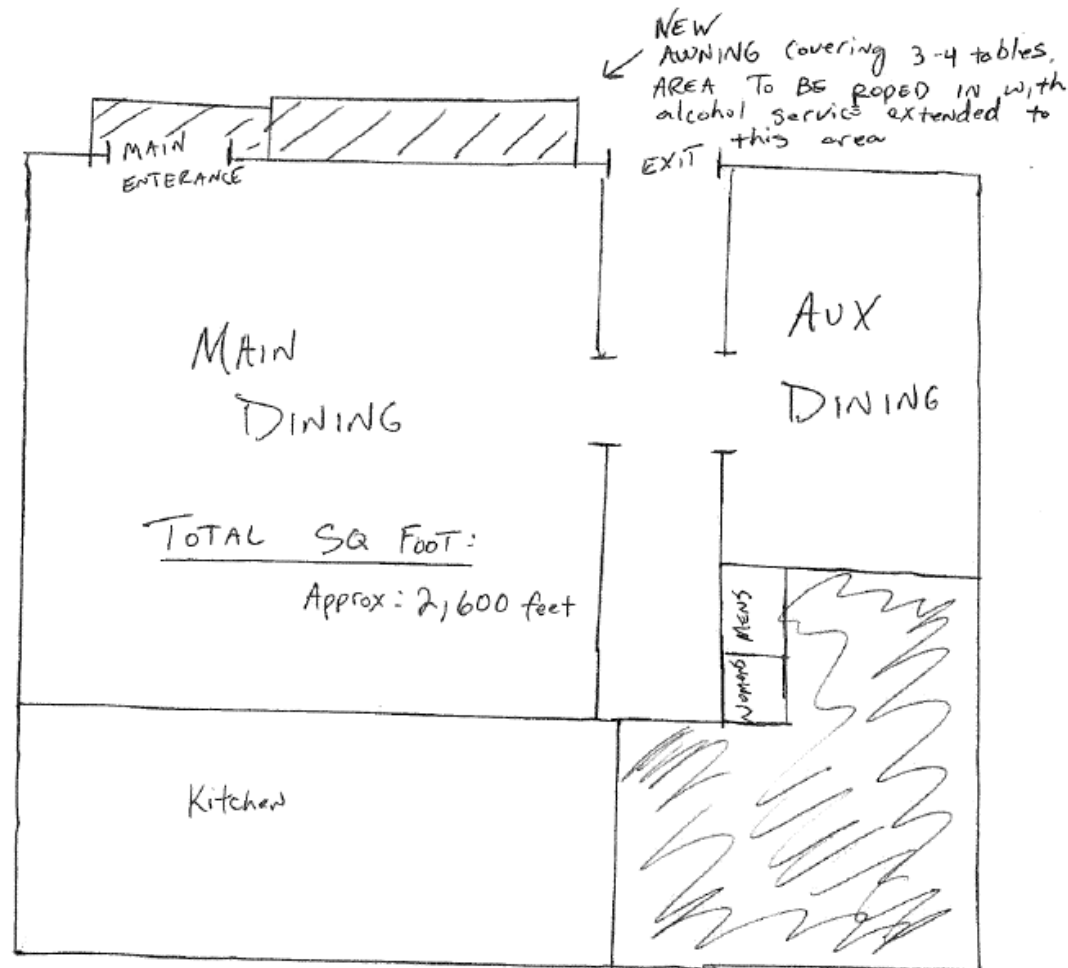 NEW
AWNING covering 3-4 tables,
AREA TO BE ROPED IN with
alcohol service extended to
this area
MAIN
ENTERANCE
EXIT
MAIN
DINING
AUX
DINING
TOTAL SQ FOOT:
Approx: 2,600 feet
MENS
WOMENS
Kitchen